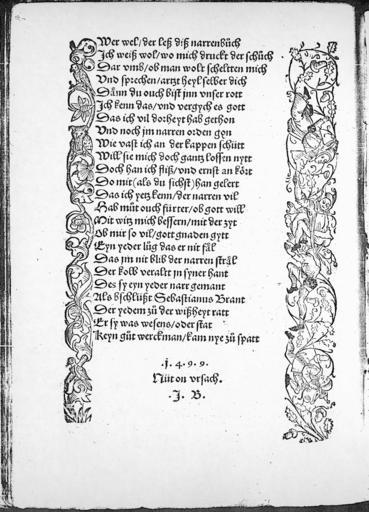 Wer wel/der leß diß narrenbůch
Ich weiß wol/wo mich druckt der schůch
Dar vmb/ob man wolt scheltten mich
Vnd sprechen/artzt heyl selber dich
Dann du ouch bist jnn vnser rott
Ich kenn das/vnd vergych es gott
Das ich vil dorheyt hab gethon
Vnd noch jm narren orden gon
Wie vast ich an der kappen schütt
Will sie mich doch gantz lossen nytt
Doch han ich fliß/vnd ernst an kört
Do mit (als du sichst) han gelert
Das ich yetz kenn/der narren vil
Hab můt ouch fürter/ob gott will
Mit witz mich bessern/mit der zyt
Ob mir so vil/gott gnaden gytt
Eyn yeder lůg das er nit fäl
Das jm nit blib der narren sträl
Der kolb veralt jn syner hant
Des sy eyn yeder narr gemant
Als bschlüßt Sebastianus Brant
Der yedem zů der wißheyt ratt
Er sy was wesens/oder stat
Keyn gůt werckman/kam nye zů spatt
.j. 4. 9. 9.
Nüt on vrsach.
.J. B.